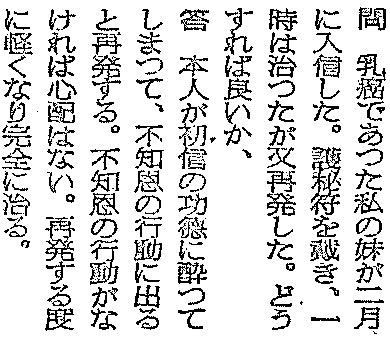 問　乳癌であつた私の妹が二月
に入信した。護秘符を戴き、一
時は治つたが又再発した。どう
すれば良いか、
答　本人が初信の功徳に酔つて
しまつて、不知恩の行動に出る
と再発する。不知恩の行動がな
ければ心配はない。再発する度
に軽くなり完全に治る。